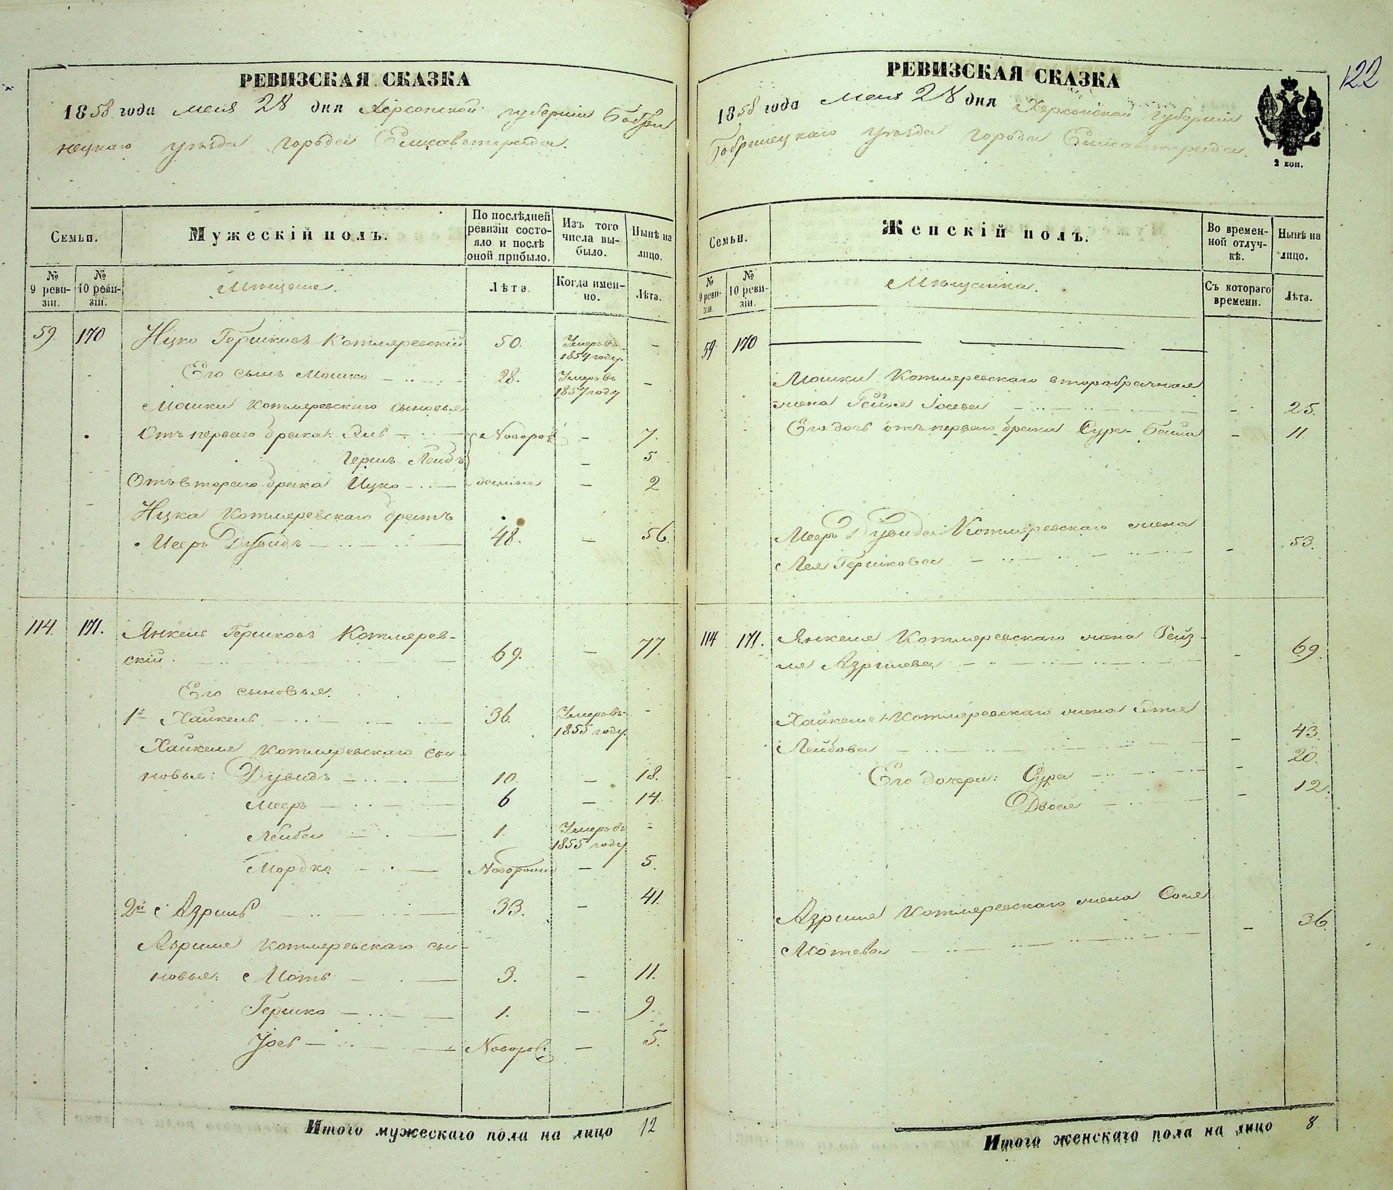 РЕВИЗСКАЯ СКАЗКА
1858 года мая 28 дня Херсонской губернии Бобри
нецкаго уезда города Елисаветграда.
Семьи.
Мужескій полъ.
По послѣдней ревизіи состояло и послѣ оной прибыло.
Изъ того числа выбыло.
Нынѣ на лицо.
№ 9 ревизіи.
№ 10 ревизіи.
Мѣщане.
Лѣта.
Когда именно.
Лѣта.
59 170 Ицко Гершковъ Котляревскій 50. Умеръ въ 1854 году —
Его сынъ Мошко — 28. Умеръ въ 1857 году —
Мошки Котляревскаго сыновья
Отъ перваго брака: — Новорож — 7.
Герш Лейбъ — 5
Отъ втораго брака Ицко — — 2
Ицка Котляревскаго братъ
Мееръ Дувидъ — 48. — 56.
114. 171. Янкель Гершковъ Котлярев-
скій. — 69. — 77.
Его сыновья:
1й Хайкель — 36. Умеръ въ 1855 году —
Хайкеля Котляревскаго сы-
новья: Дувидъ — 10. — 18.
Мееръ — 6 — 14.
Лейба — 1. Умеръ въ 1855 году —
Мордко — Новорожд — 5.
2й Азриль 33. — 41.
Азриля Котляревскаго сы-
новья: Моть — 3. — 11.
Гершко — 1. — 9.
Новорож. — 5.
Итого мужескаго пола на лицо 12
122
РЕВИЗСКАЯ СКАЗКА
1858 года мая 28 дня Херсонской губерніи
Бобринецкаго уезда города Елисаветграда.
2 коп.
Семьи.
Женскій полъ.
Во временной отлучкѣ.
Нынѣ на лицо.
№ 9 ревизіи.
№ 10 ревизіи.
Мѣщанки.
Съ котораго времени.
Лѣта.
59 170 —
Мошки Котляревскаго второбрачная
жена Гейля — 25.
Его дочь отъ перваго брака Сура-Бейла — 11.
Меера Дувида Котляревскаго жена
Лея Гершкова — — 53.
114 171. Янкеля Котляревскаго жена Рейз-
ля Азрилева — 69.
Хайкеля Котляревскаго жена
Лейбова — — 43.
Его дочери: Сура — 20.
Двося — — 12.
Азриля Котляревскаго жена Сося
Мотева — — 36.
Итого женскаго пола на лицо 8